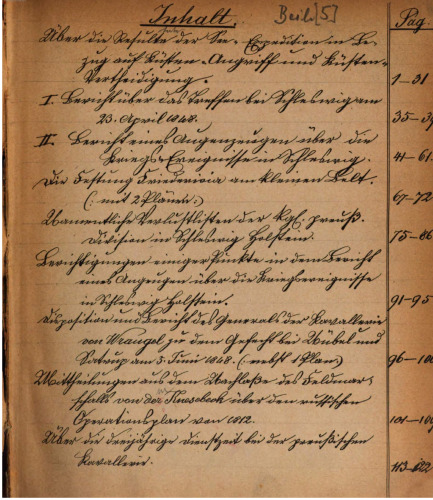 Inhalt. Beil[5] Pag.
Über die Resulte der See-Expedition in Be-
zug auf Küsten-Angriff und Küsten-
Vertheidigung. 1-31
I. Bericht über das Treffen bei Schleswig am
23. April 1848. 35-3
II. Bericht eines Augenzeugen über die
Kriegs-Ereignisse in Schleswig. 41-61
Die Festung Friedericia am kleinen Belt.
(: mit 2 Plänen :) 67-72
Namentliche Verlustlisten der kgl. preuß.
Division in Schleswig Holstein. 75-86
Berichtigungen einiger Punkte in dem Bericht
eines Augenzeugen über die Kriegsereignisse
in Schleswig Holstein. 91-95
Disposition und Bericht des Generals der Kavallerie
von Wrangel zu dem Gefecht bei Nübel und
Satrup am 5. Juni 1848. (: nebst 1 Plan :) 96-100
Mittheilungen aus dem Nachlaße des Feldmar-
schalls von dem Knesebeck über den russischen
Operationsplan von 1812. 101-10
Über die dreijährige Dienstzeit bei der preußischen
Kavallerie. 113-122